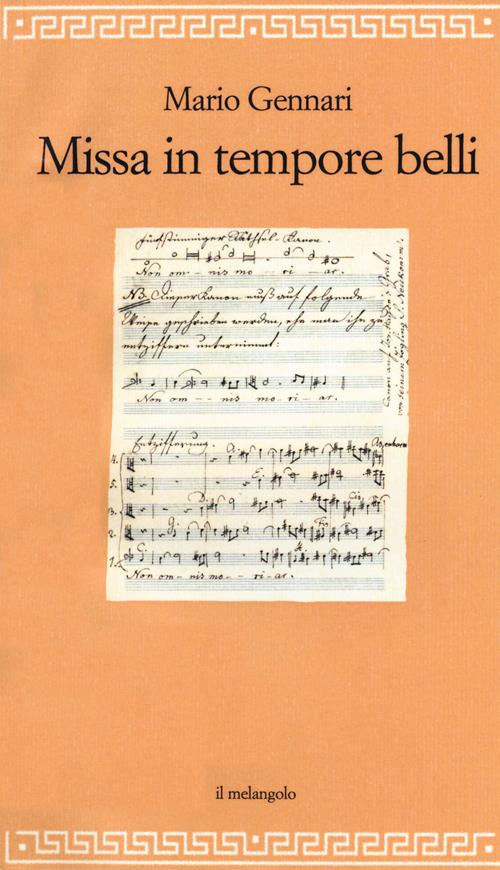 Mario Gennari
Missa in tempore belli
fünfstimmiger Räthsel-Kanon.
Non om--nis mo--ri-ar.
NB. Dieser Kanon muß auf folgende
Weise geschrieben werden, ehe man ihn zu
entziffern unternimmt:
Non om---nis mo-ri-ar.
Entzifferung.
4.
5.
3.
2.
1.
Non om--nis mo--ri-ar.
Canon auf
von seinem Zögling S. Neukomm.
il melangolo